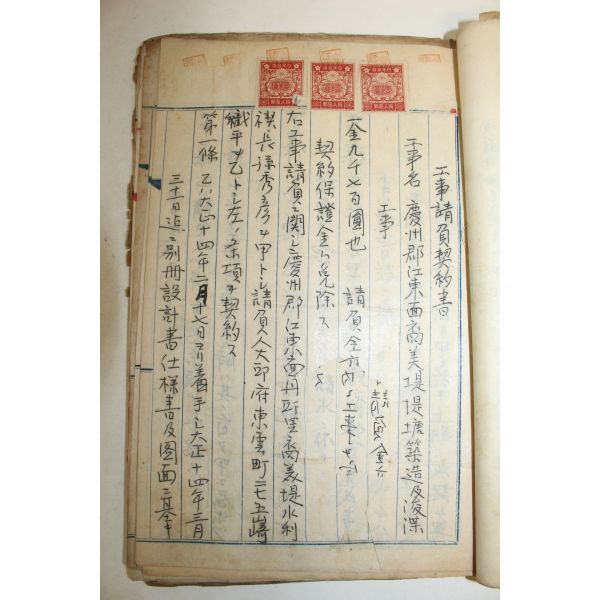 工事請負契約書
工事名 慶州郡江東面商美堤堤塘築造及浚渫
工事
請負金
一金九千七百圓也 請負金 工事
契約保證金ハ免除ス
右工事請負ニ関シ慶州郡江東面丹邱里商美堤水利
稧長孫秀彦ヲ甲トシ請負人大邱府東雲町二七五崎
織平ヲ乙トシ左ノ条項ヲ契約ス
第一條 乙ハ大正十四年二月十七日ヨリ着手シ大正十四年三月
三十一日迄ニ別册設計書仕様書及図面ニ基キ